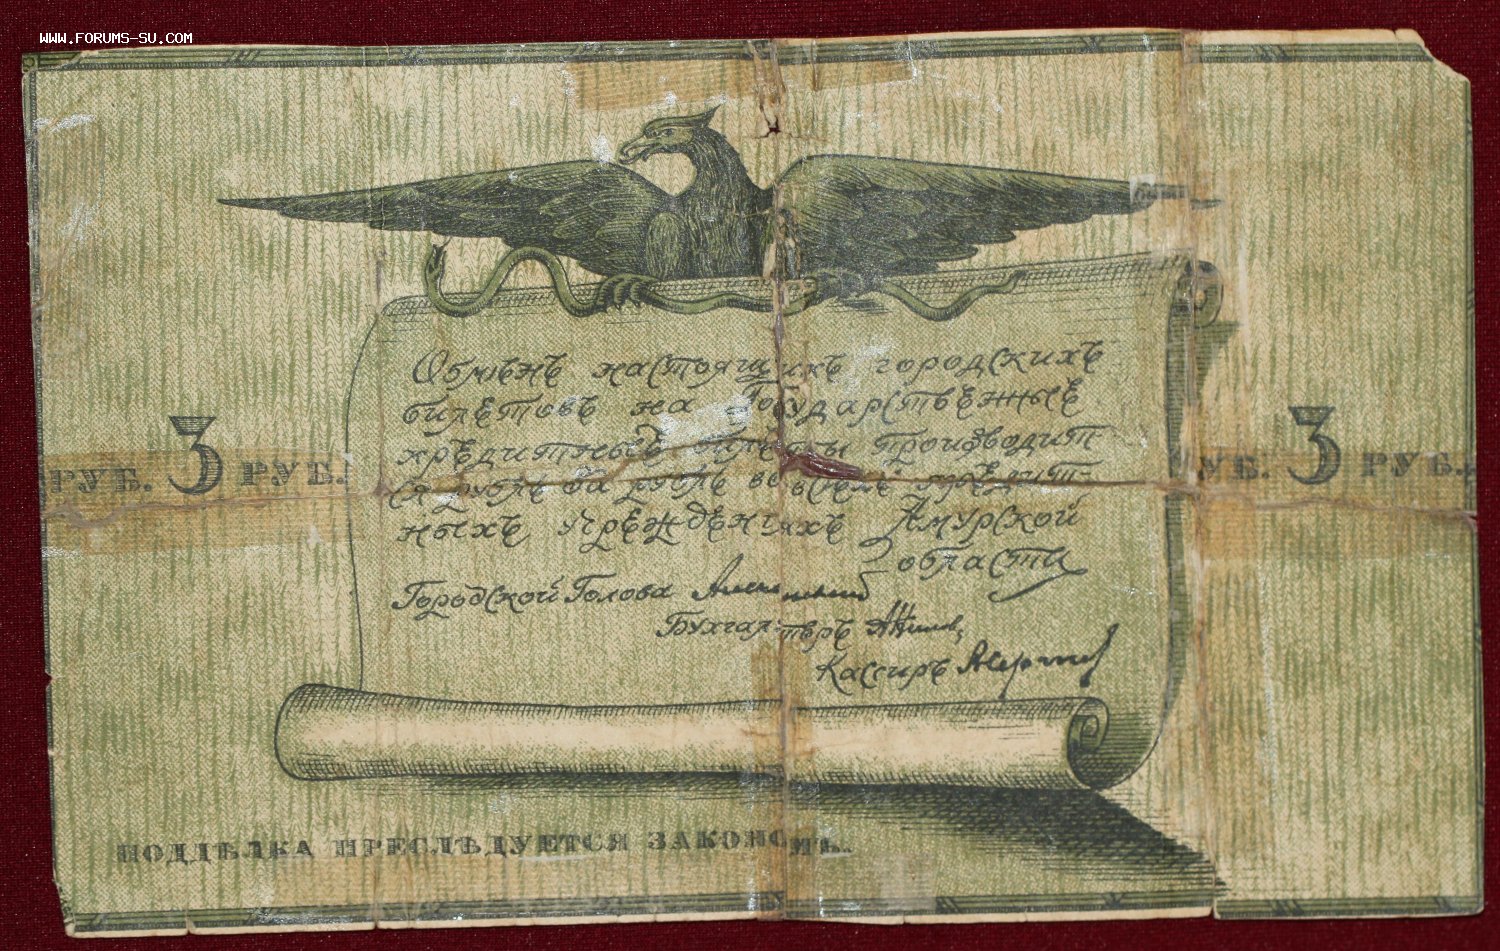 WWW.FORUMS-SU.COM
Обмѣнъ настоящихъ городскихъ
билетовъ на Государственные
кредитные билеты производит
ся рубль за рубль во всѣхъ кредит-
ныхъ учрежденіяхъ Амурской
области
РУБ. 3 РУБ.
УБ. 3 РУБ.
Городской Голова
Бухгалтеръ
Кассиръ
ПОДДѢЛКА ПРЕСЛѢДУЕТСЯ ЗАКОНОМЪ.